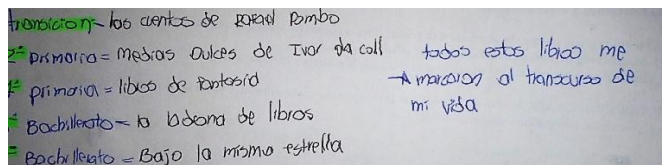 transicion = los cuentos de Rafael Pombo
2º primaria = Medias Dulces de Ivar da coll
1º primaria = libros de fantasia
º Bachillerato = la ladrona de libros
º Bachillerato = Bajo la misma estrella
todos estos libros me
marcaron al transcurso de
mi vida